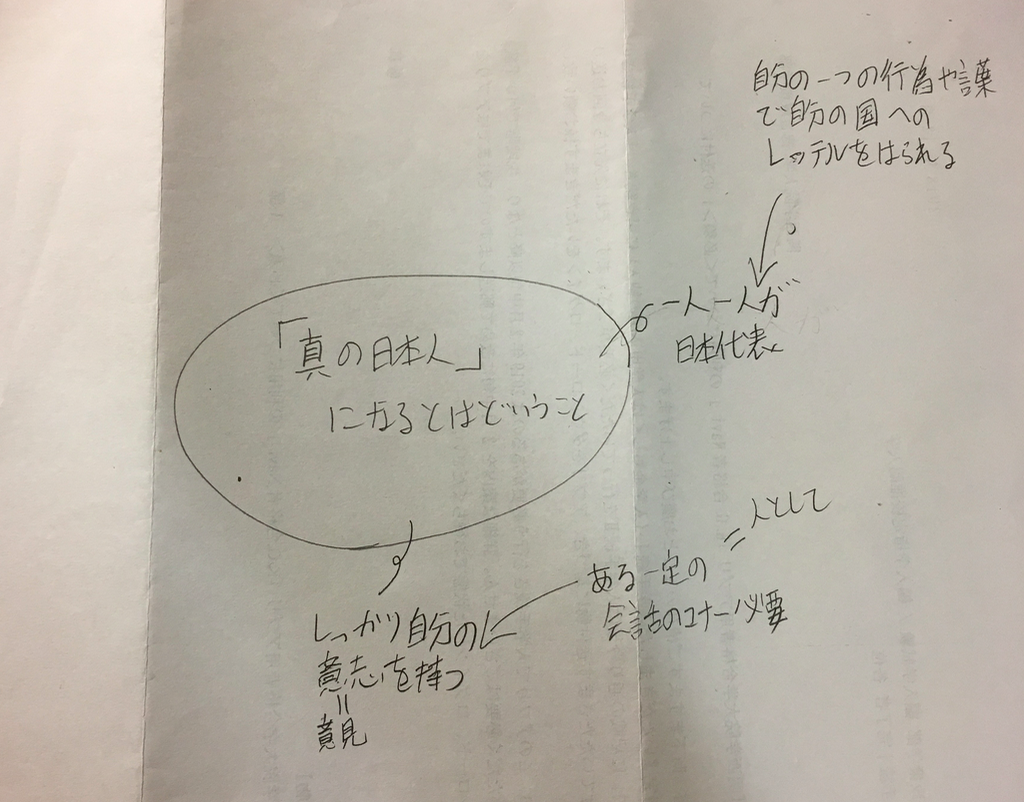 自分の一つの行為や言葉
で自分の国への
レッテルをはられる
一人一人が
日本代表
「真の日本人」
になるとはどいうこと
人として
=
ある一定の
会話のコナー必要
しっかり自分の
意志を持つ
=
意見